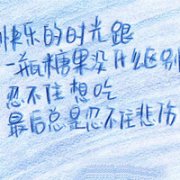 快乐的时光跟
一瓶糖果没什么区别
忍不住想吃
最后总是忍不住悲伤